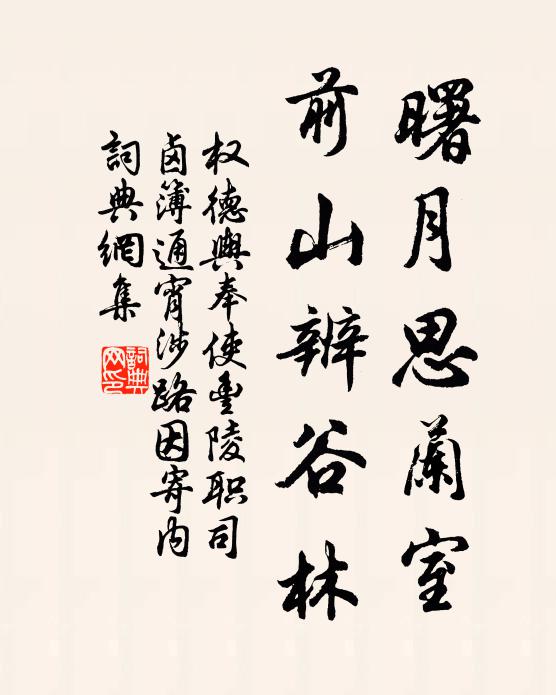 曙月思蘭室
前山辨谷林
权德輿奉使豊陵职司
卤簿通宵涉路因寄内
詞典網集
詞典
网印